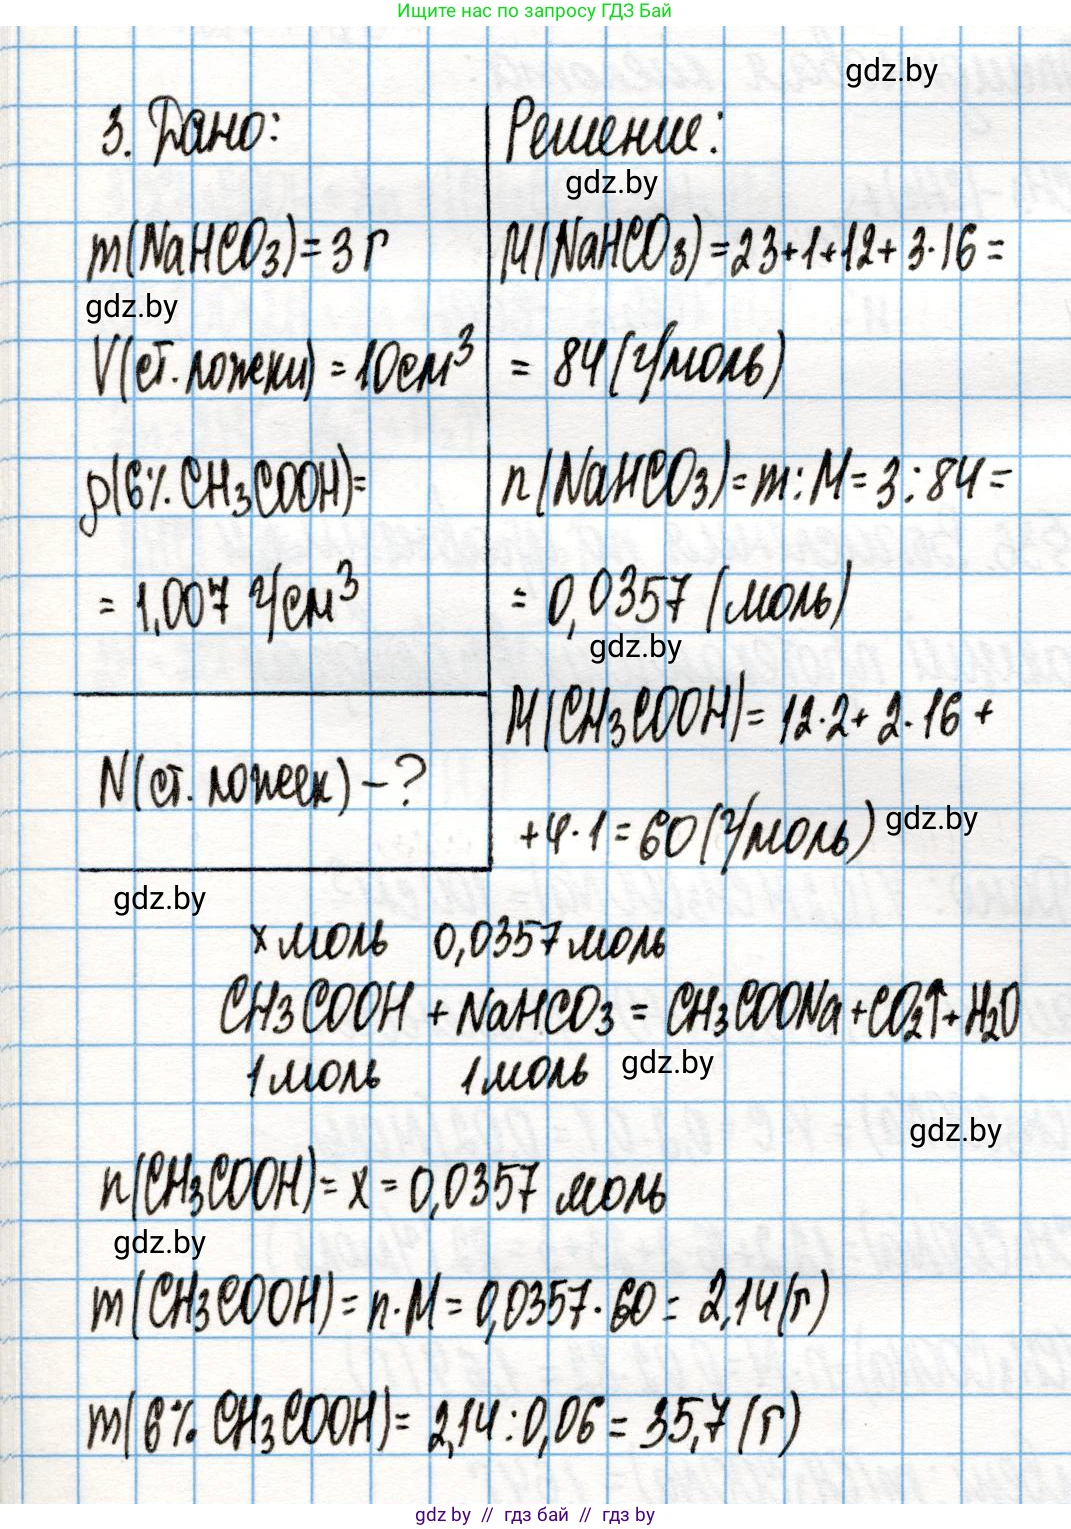 Ищите нас по запросу ГДЗ Бай
gdz.by
3. Дано:
gdz.by
m(NaHCO₃)=3 г
gdz.by
V(ст. ложки) = 10 см³
ρ(6% CH₃COOH)=
= 1,007 г/см³
N(ст. ложек) – ?
gdz.by
Решение:
M(NaHCO₃)=23+1+12+3·16=
= 84 (г/моль)
n(NaHCO₃)=m:M=3:84=
= 0,0357 (моль)
gdz.by
M(CH₃COOH)=12·2+2·16+
+4·1=60(г/моль)
gdz.by
x моль 0,0357 моль
CH₃COOH + NaHCO₃ = CH₃COONa+CO₂↑+H₂O
1 моль 1 моль
gdz.by
gdz.by
n(CH₃COOH)=x=0,0357 моль
gdz.by
m(CH₃COOH)=n·M=0,0357·60=2,14(г)
m(6% CH₃COOH)=2,14:0,06=35,7 (г)
gdz by // гдз бай // гдз by